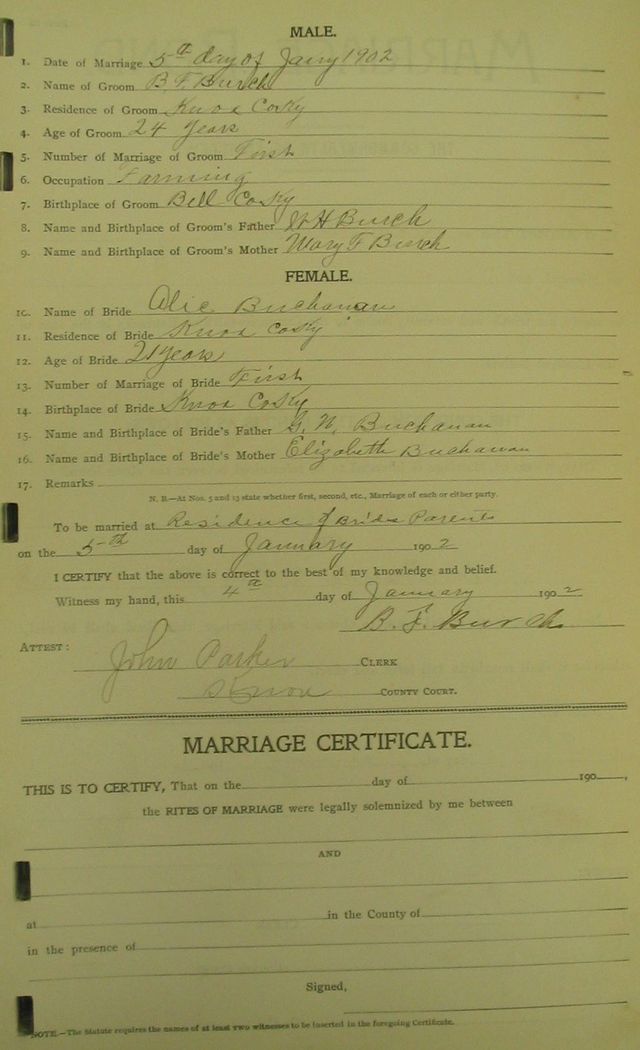 MALE.
1. Date of Marriage 5th day of Jany 1902
2. Name of Groom B. F. Burch
3. Residence of Groom Knox Co Ky
4. Age of Groom 24 years
5. Number of Marriage of Groom First
6. Occupation Farming
7. Birthplace of Groom Bell Co Ky
8. Name and Birthplace of Groom's Father W H Burch
9. Name and Birthplace of Groom's Mother Mary F Burch
FEMALE.
10. Name of Bride Alie Buchanan
11. Residence of Bride Knox Co Ky
12. Age of Bride 21 years
13. Number of Marriage of Bride First
14. Birthplace of Bride Knox Co Ky
15. Name and Birthplace of Bride's Father G. N. Buchanan
16. Name and Birthplace of Bride's Mother Elizabeth Buchanan
17. Remarks
N. B.—At Nos. 5 and 13 state whether first, second, etc., Marriage of each or either party.
To be married at Residence of Brids Parents
on the 5th day of January 1902
I CERTIFY that the above is correct to the best of my knowledge and belief.
Witness my hand, this 4th day of January 1902
B. F. Burch
ATTEST:
John Parker CLERK
COUNTY COURT.
MARRIAGE CERTIFICATE.
THIS IS TO CERTIFY, That on the day of 190 ,
the RITES OF MARRIAGE were legally solemnized by me between
AND
at in the County of
in the presence of
Signed,
NOTE.—The Statute requires the names of at least two witnesses to be inserted in the foregoing Certificate.